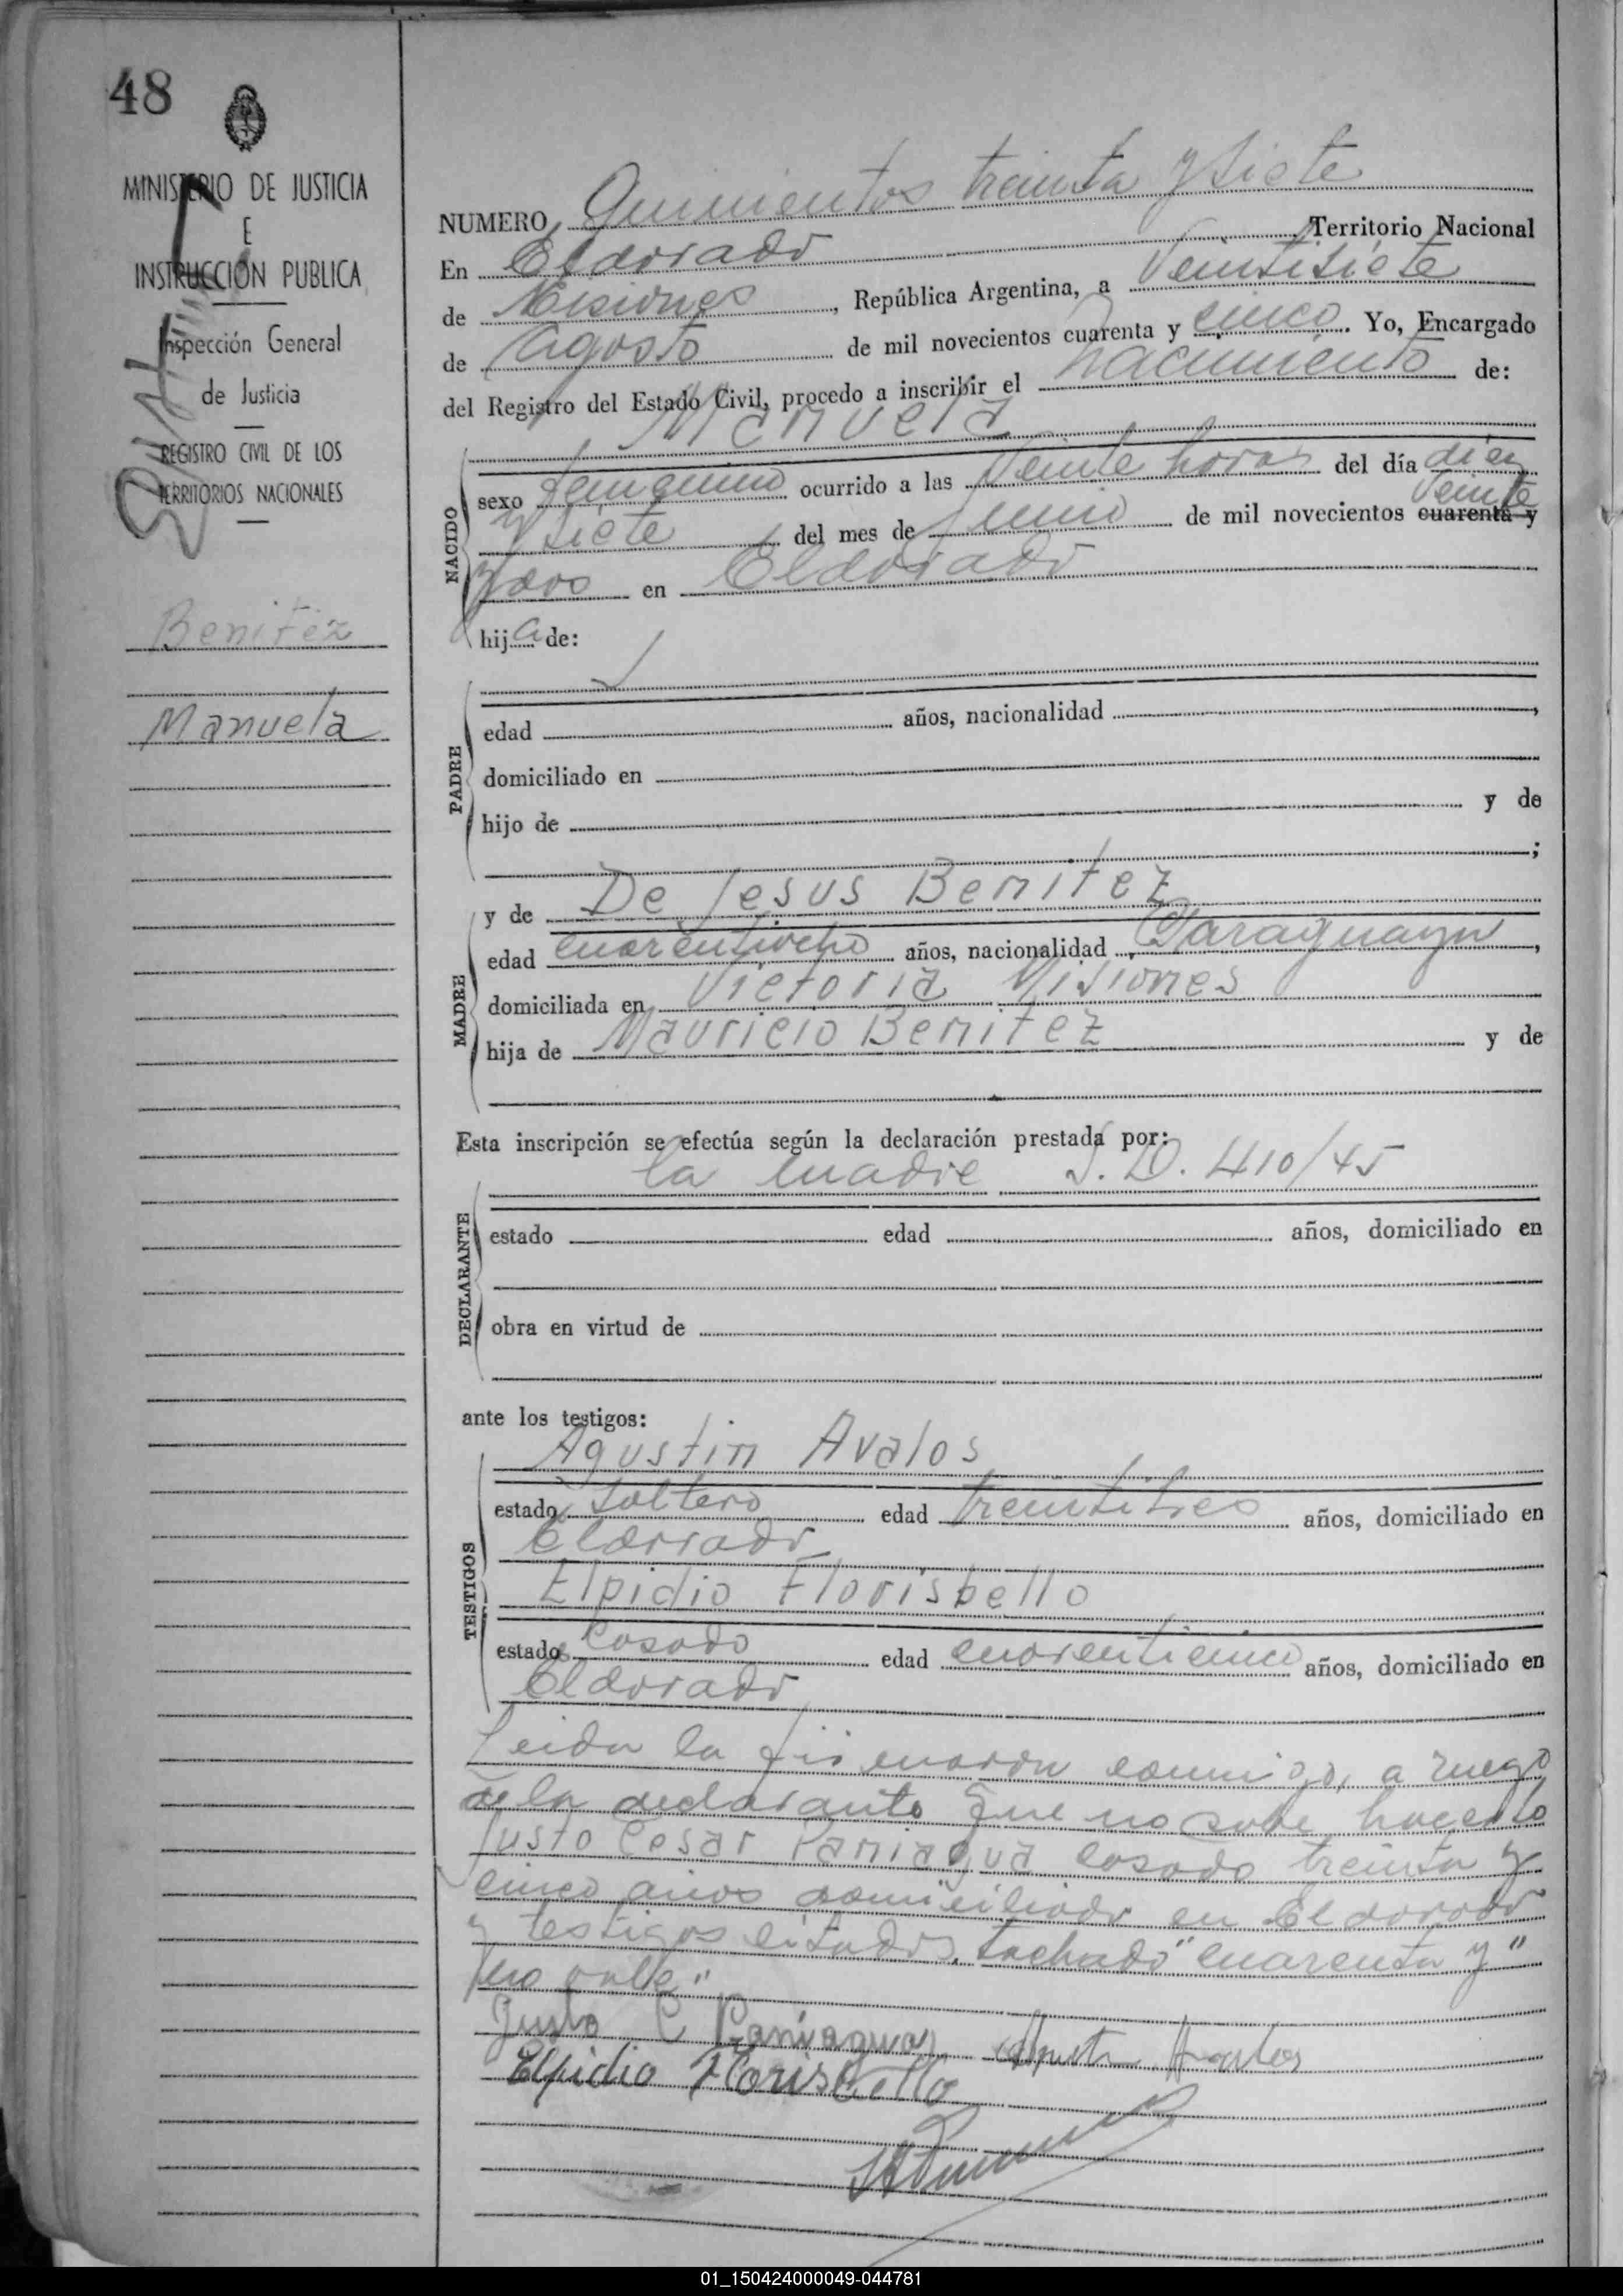 48
MINISTERIO DE JUSTICIA
E
INSTRUCCIÓN PUBLICA
Inspección General
de Justicia
REGISTRO CIVIL DE LOS
TERRITORIOS NACIONALES
Benitez
Manuela
NUMERO Quinientos treinta y siete
En Eldorado Territorio Nacional
de Misiones, República Argentina, a Veintisiete
de Agosto de mil novecientos cuarenta y cinco. Yo, Encargado
del Registro del Estado Civil, procedo a inscribir el nacimiento de:
Manuela
NACIDO
sexo femenino ocurrido a las Veinte horas del día diez
y siete del mes de Junio de mil novecientos cuarenta y veinte
y dos en Eldorado
hija de:
PADRE
edad años, nacionalidad ,
domiciliado en
hijo de y de
;
MADRE
y de De Jesus Benitez
edad cuarentiocho años, nacionalidad Paraguaya,
domiciliada en Victoria Misiones
hija de Mauricio Benitez y de
Esta inscripción se efectúa según la declaración prestada por:
la madre S. D. 410/45
DECLARANTE
estado edad años, domiciliado en
obra en virtud de
ante los testigos:
TESTIGOS
Agustin Avalos
estado soltero edad treintitres años, domiciliado en
Eldorado
Elpidio Florisbello
estado casado edad cuarenticinco años, domiciliado en
Eldorado
Leida la firmaron conmigo, a ruego
de la declarante que no sabe hacerlo
Justo Cesar Paniagua casado treinta y
cinco años domiciliado en Eldorado
y testigos citados. tachado "cuarenta y"
no vale"
Justo C Paniagua Agustin Avalos
Elpidio Florisbello
01_150424000049-044781